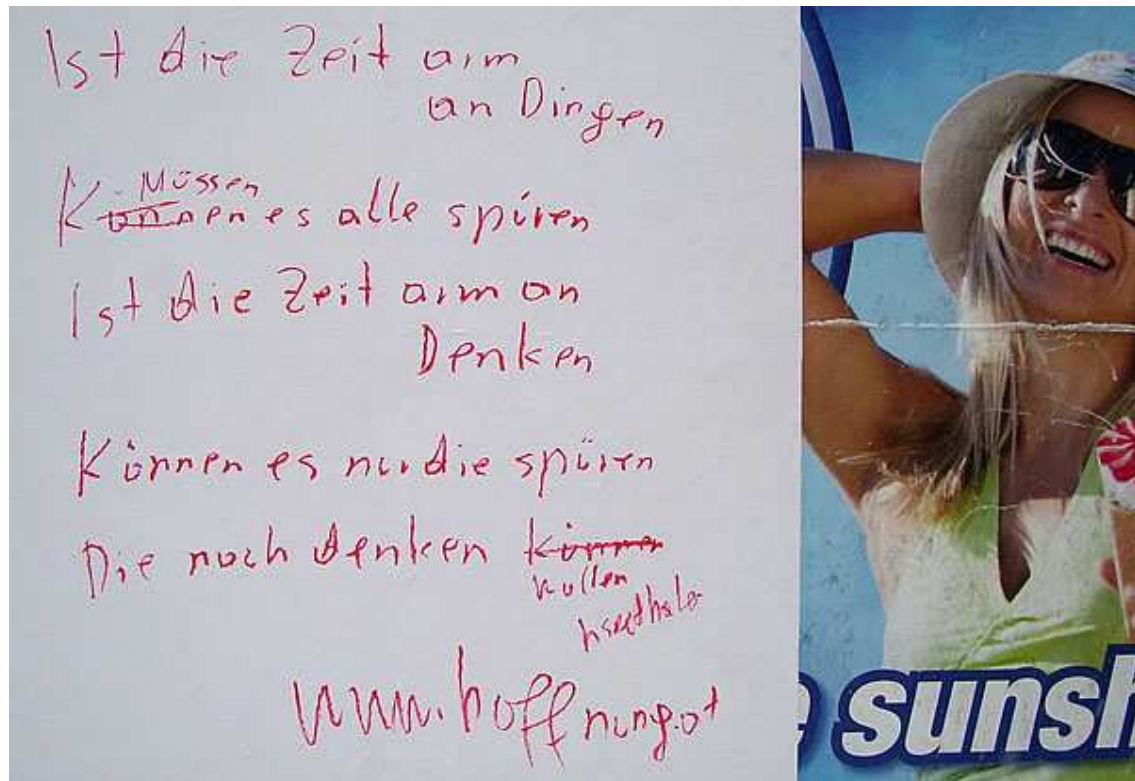 Ist die Zeit arm
an Dingen
Müssen
Können es alle spüren
Ist die Zeit arm an
Denken
Können es nur die spüren
Die noch denken könne
wollen
www.hoffnung.at
sunsh